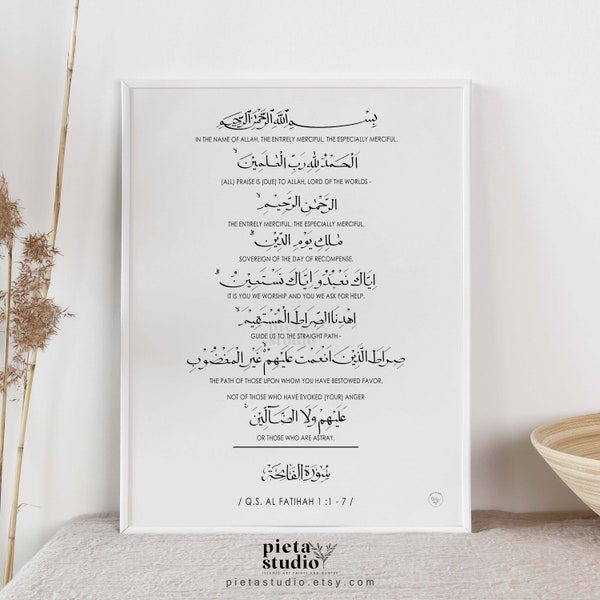 بِسْمِ اللهِ الرَّحْمٰنِ الرَّحِيْمِ
IN THE NAME OF ALLAH, THE ENTIRELY MERCIFUL, THE ESPECIALLY MERCIFUL.
اَلْحَمْدُ لِلّٰهِ رَبِّ الْعٰلَمِيْنَۙ
(ALL) PRAISE IS (DUE) TO ALLAH, LORD OF THE WORLDS -
الرَّحْمٰنِ الرَّحِيْمِۙ
THE ENTIRELY MERCIFUL, THE ESPECIALLY MERCIFUL,
مٰلِكِ يَوْمِ الدِّيْنِۗ
SOVEREIGN OF THE DAY OF RECOMPENSE.
اِيَّاكَ نَعْبُدُ وَاِيَّاكَ نَسْتَعِيْنُۗ
IT IS YOU WE WORSHIP AND YOU WE ASK FOR HELP.
اِهْدِنَا الصِّرَاطَ الْمُسْتَقِيْمَۙ
GUIDE US TO THE STRAIGHT PATH -
صِرَاطَ الَّذِيْنَ اَنْعَمْتَ عَلَيْهِمْ ەۙ غَيْرِ الْمَغْضُوْبِ
THE PATH OF THOSE UPON WHOM YOU HAVE BESTOWED FAVOR,
NOT OF THOSE WHO HAVE EVOKED (YOUR) ANGER
عَلَيْهِمْ وَلَا الضَّاۤلِّيْنَ
OR THOSE WHO ARE ASTRAY.
سُوْرَةُ الْفَاتِحَةِ
/ Q.S. AL FATIHAH 1:1 - 7 /
pieta
studio
ISLAMIC ART PRINTS AND QUOTES
pietastudio.etsy.com